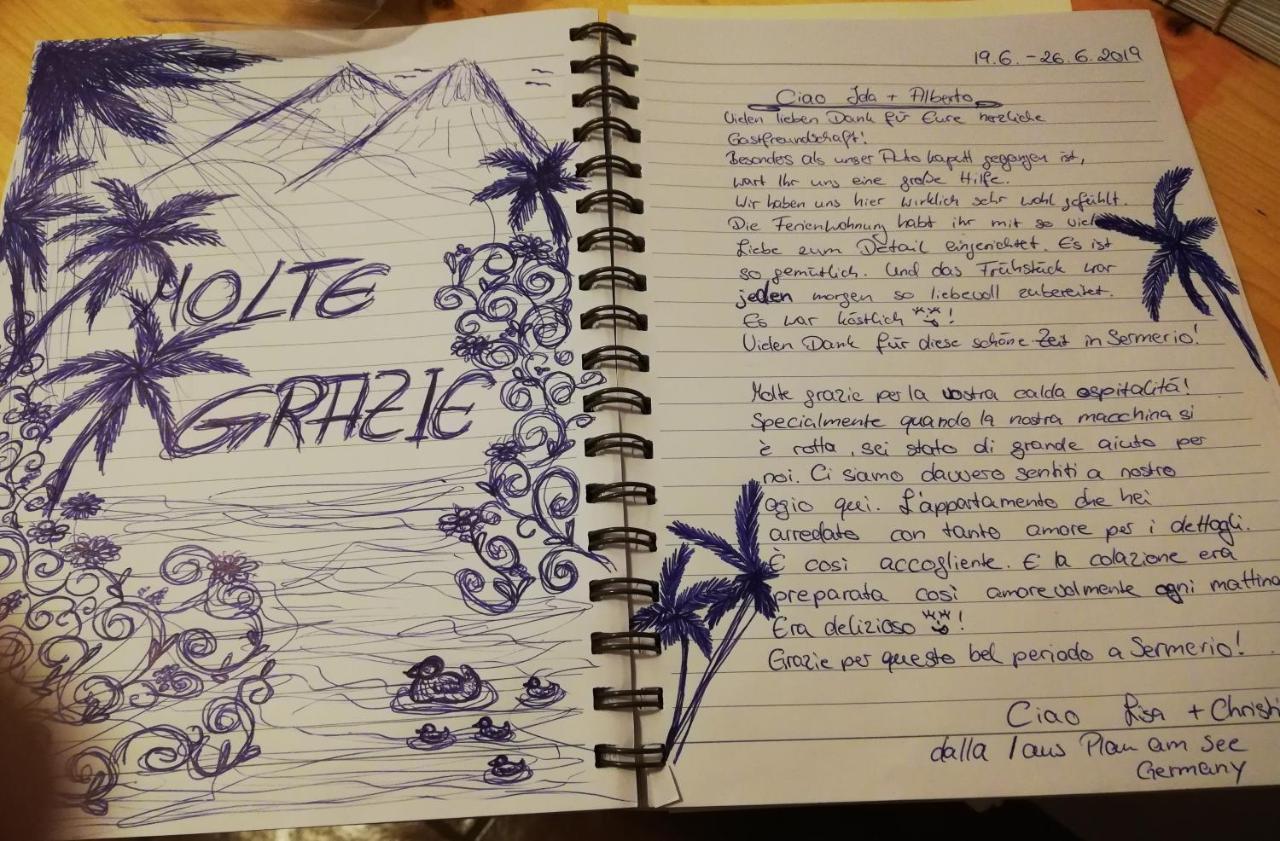 MOLTE
GRAZIE
19.6. - 26.6.2019
Ciao Ida + Alberto
Vielen lieben Dank für Eure herzliche
Gastfreundschaft!
Besondes als unser Auto kaputt gegangen ist,
wart Ihr uns eine große Hilfe.
Wir haben uns hier wirklich sehr wohl gefühlt.
Die Ferienwohnung habt ihr mit so viel
Liebe zum Detail eingerichtet. Es ist
so gemütlich. Und das Frühstück war
jeden morgen so liebevoll zubereitet.
Es war köstlich !
Vielen Dank für diese schöne Zeit in Sermerio!
Molte grazie per la vostra calda ospitalità!
Specialmente quando la nostra macchina si
è rotta, sei stato di grande aiuto per
noi. Ci siamo davvero sentiti a nostro
agio qui. L'appartamento che hei
arredato con tanto amore per i dettagli.
È così accogliente. E la colazione era
preparata così amorevolmente ogni mattina
Era delizioso !
Grazie per questo bel periodo a Sermerio!
Ciao Lisa + Christi
dalla / aus Plau am See
Germany